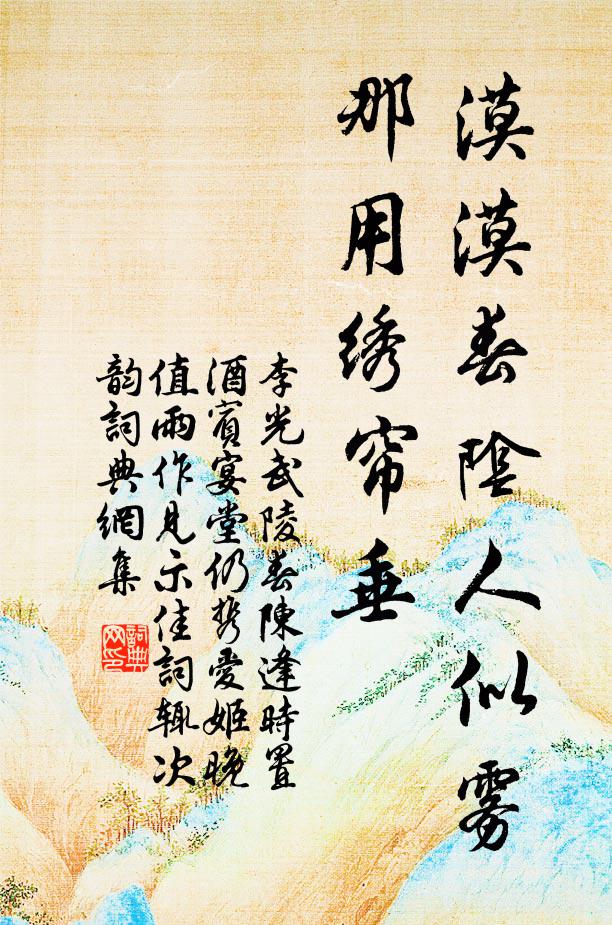 漠漠春陰人似雾
那用绣帘垂
李光武陵春陳逢時置
酒賓宴堂仍携愛姬晚
值雨作見示佳詞輒次
韵詞典網集
詞典
网印